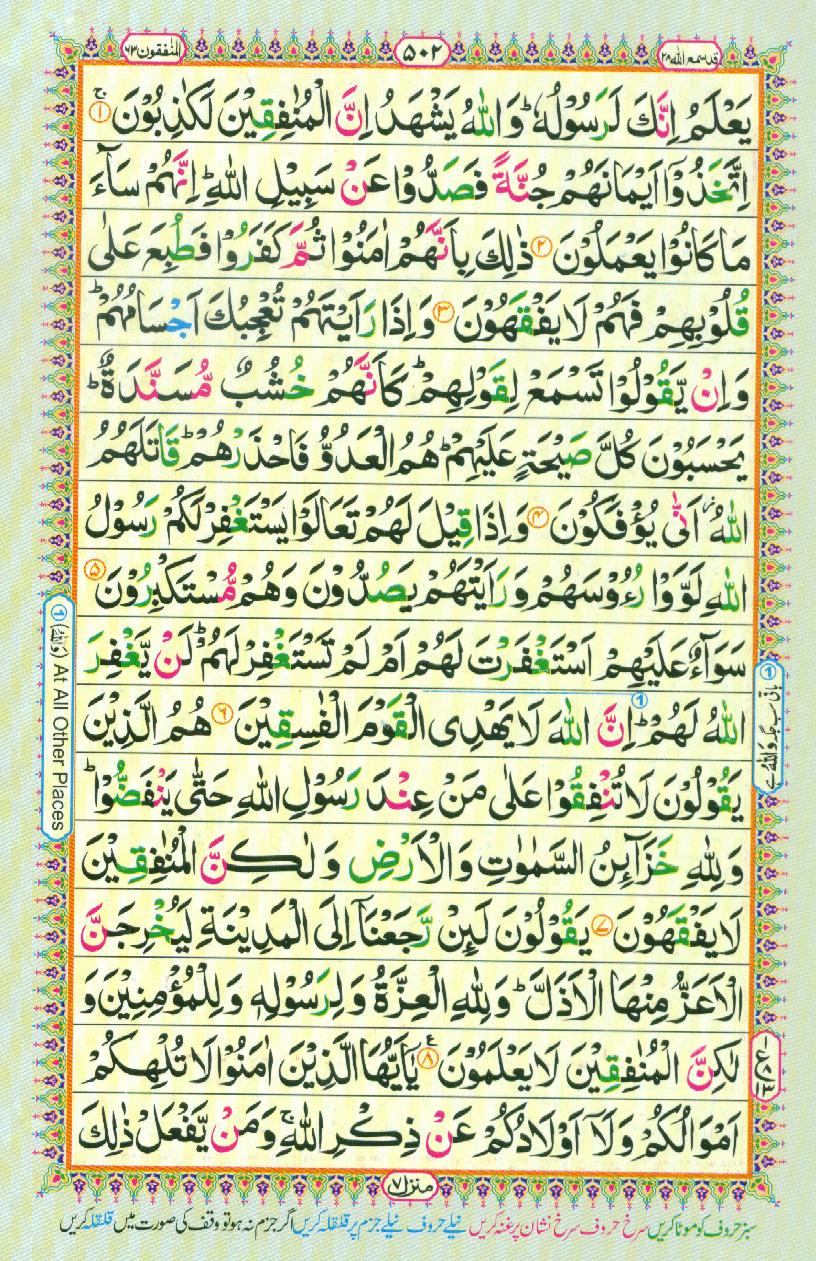 قدسمع الله ۲۸
۵۰۲
المنٰفقون ۶۳
يَعْلَمُ اِنَّكَ لَرَسُوْلُهٗ ؕ وَاللّٰهُ يَشْهَدُ اِنَّ الْمُنٰفِقِيْنَ لَكٰذِبُوْنَ ۚ‏ ۱
اِتَّخَذُوْۤا اَيْمَانَهُمْ جُنَّةً فَصَدُّوْا عَنْ سَبِيْلِ اللّٰهِ ؕ اِنَّهُمْ سَآءَ
مَا كَانُوْا يَعْمَلُوْنَ ۲ ذٰلِكَ بِاَنَّهُمْ اٰمَنُوْا ثُمَّ كَفَرُوْا فَطُبِعَ عَلٰى
قُلُوْبِهِمْ فَهُمْ لَا يَفْقَهُوْنَ ۳ وَاِذَا رَاَيْتَهُمْ تُعْجِبُكَ اَجْسَامُهُمْ ؕ
وَاِنْ يَّقُوْلُوْا تَسْمَعْ لِقَوْلِهِمْ ؕ كَاَنَّهُمْ خُشُبٌ مُّسَنَّدَةٌ ؕ
يَحْسَبُوْنَ كُلَّ صَيْحَةٍ عَلَيْهِمْ ؕ هُمُ الْعَدُوُّ فَاحْذَرْهُمْ ؕ قَاتَلَهُمُ
اللّٰهُ ؗ اَنّٰى يُؤْفَكُوْنَ ۴ وَاِذَا قِيْلَ لَهُمْ تَعَالَوْا يَسْتَغْفِرْ لَكُمْ رَسُوْلُ
اللّٰهِ لَوَّوْا رُءُوْسَهُمْ وَرَاَيْتَهُمْ يَصُدُّوْنَ وَهُمْ مُّسْتَكْبِرُوْنَ ۵
سَوَآءٌ عَلَيْهِمْ اَسْتَغْفَرْتَ لَهُمْ اَمْ لَمْ تَسْتَغْفِرْ لَهُمْ ؕ لَنْ يَّغْفِرَ
اللّٰهُ لَهُمْ ؕ اِنَّ اللّٰهَ لَا يَهْدِى الْقَوْمَ الْفٰسِقِيْنَ ۶ هُمُ الَّذِيْنَ
يَقُوْلُوْنَ لَا تُنْفِقُوْا عَلٰى مَنْ عِنْدَ رَسُوْلِ اللّٰهِ حَتّٰى يَنْفَضُّوْا ؕ
وَلِلّٰهِ خَزَآئِنُ السَّمٰوٰتِ وَالْاَرْضِ وَلٰكِنَّ الْمُنٰفِقِيْنَ
لَا يَفْقَهُوْنَ ۷ يَقُوْلُوْنَ لَئِنْ رَّجَعْنَاۤ اِلَى الْمَدِيْنَةِ لَيُخْرِجَنَّ
الْاَعَزُّ مِنْهَا الْاَذَلَّ ؕ وَلِلّٰهِ الْعِزَّةُ وَلِرَسُوْلِهٖ وَلِلْمُؤْمِنِيْنَ وَ
لٰكِنَّ الْمُنٰفِقِيْنَ لَا يَعْلَمُوْنَ ۸ يٰۤاَيُّهَا الَّذِيْنَ اٰمَنُوْا لَا تُلْهِكُمْ
اَمْوَالُكُمْ وَلَاۤ اَوْلَادُكُمْ عَنْ ذِكْرِ اللّٰهِ ۚ وَمَنْ يَّفْعَلْ ذٰلِكَ
① (وَاللّٰهُ) At All Other Places
منزل ۷
سبز حروف کو موٹا کریں سرخ حروف سرخ نشان پر غنہ کریں نیلے حروف نیلے جزم پر قلقلہ کریں اگر جزم نہ ہو تو وقف کی صورت میں قلقلہ کریں